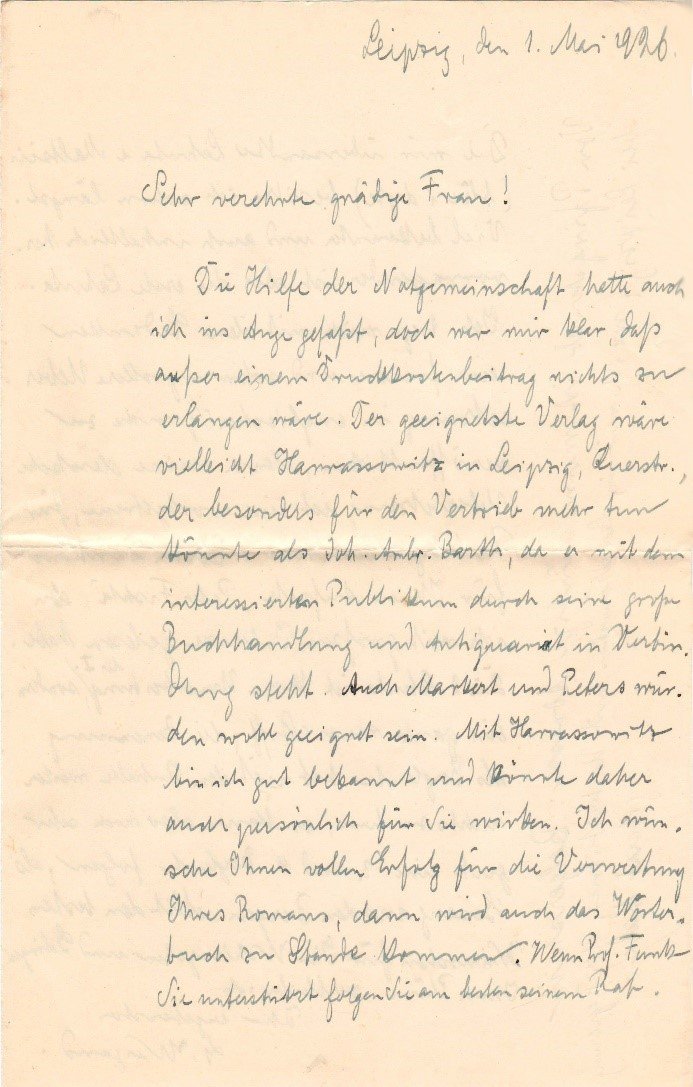 Leipzig, den 1. Mai 1926.
Sehr verehrte gnädige Frau!
Die Hilfe der Notgemeinschaft hatte auch
ich ins Auge gefaßt, doch war mir klar, daß
außer einem Druckkostenbeitrag nichts zu
erlangen wäre. Der geeignetste Verlag wäre
vielleicht Harrassowitz in Leipzig, Querstr.,
der besonders für den Vertrieb mehr tun
könnte als Joh. Ambr. Barth, da er mit dem
interessierten Publikum durch seine große
Buchhandlung und Antiquariat in Verbin-
dung steht. Auch Markert und Peters wür-
den wohl geeignet sein. Mit Harrassowitz
bin ich gut bekannt und könnte daher
auch persönlich für Sie wirken. Ich wün-
sche Ihnen vollen Erfolg für die Verwertung
Ihres Romans, dann wird auch das Wörter-
buch zu Stande kommen. Wenn Prof.
Sie unterstützt folgen Sie am besten seinem Rat.